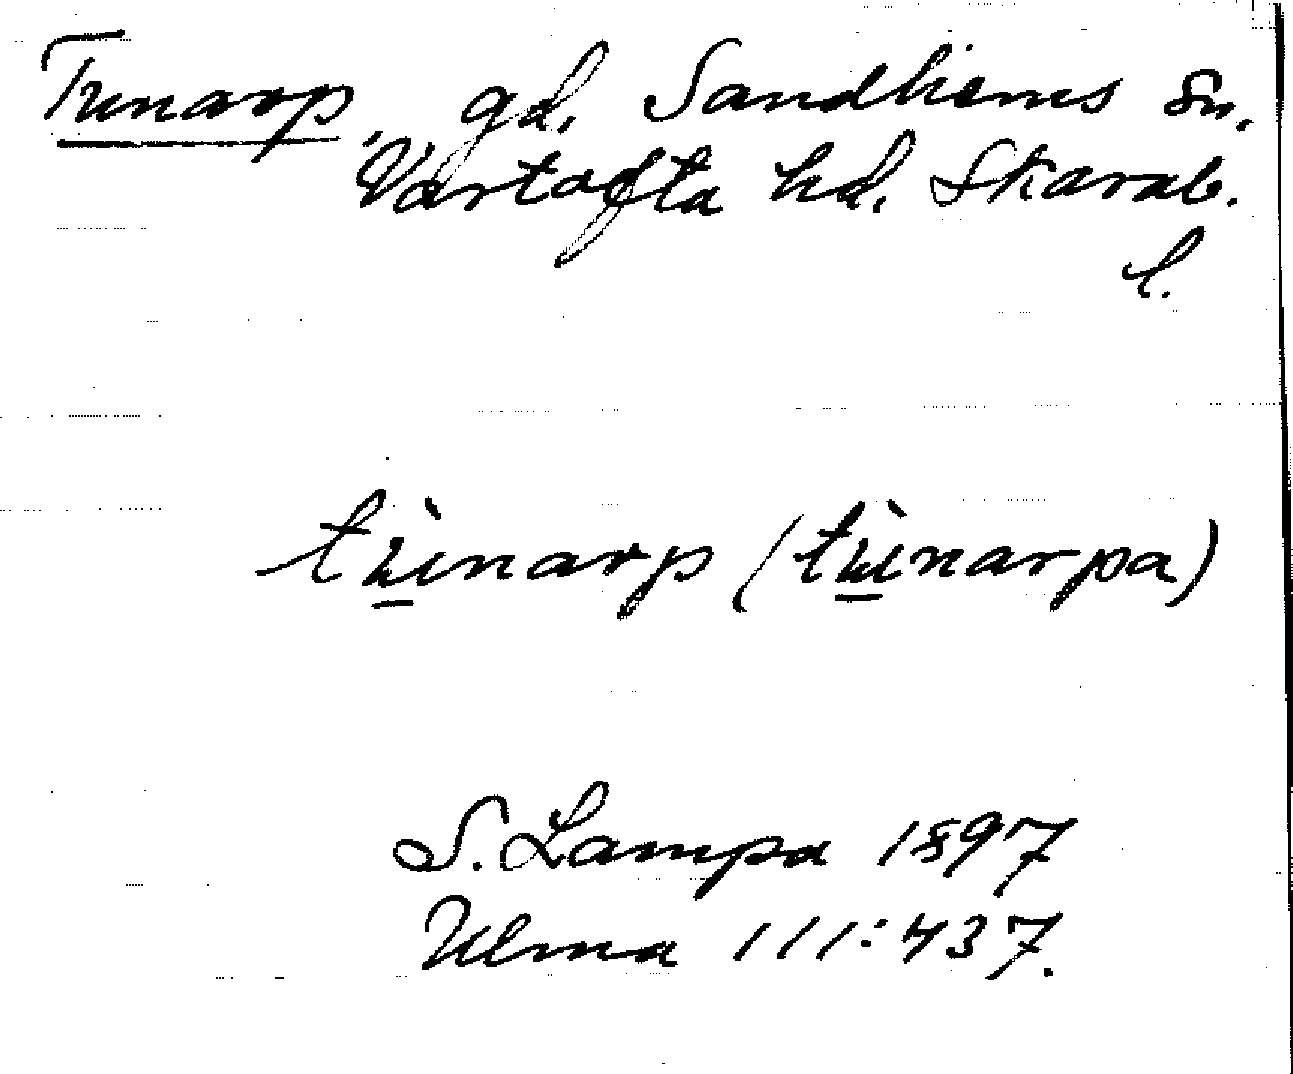 Trunarp, gd. Sandhems sn.
Vartofta hd. Skarab.
l.
trùnarp (trùnarpa)
S. Lampa 1897
Ulma 111:437.